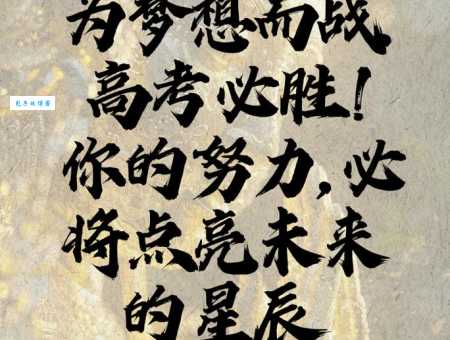 为梦想而战，
高考必胜！
你的努力，必
将点亮未来
的星辰